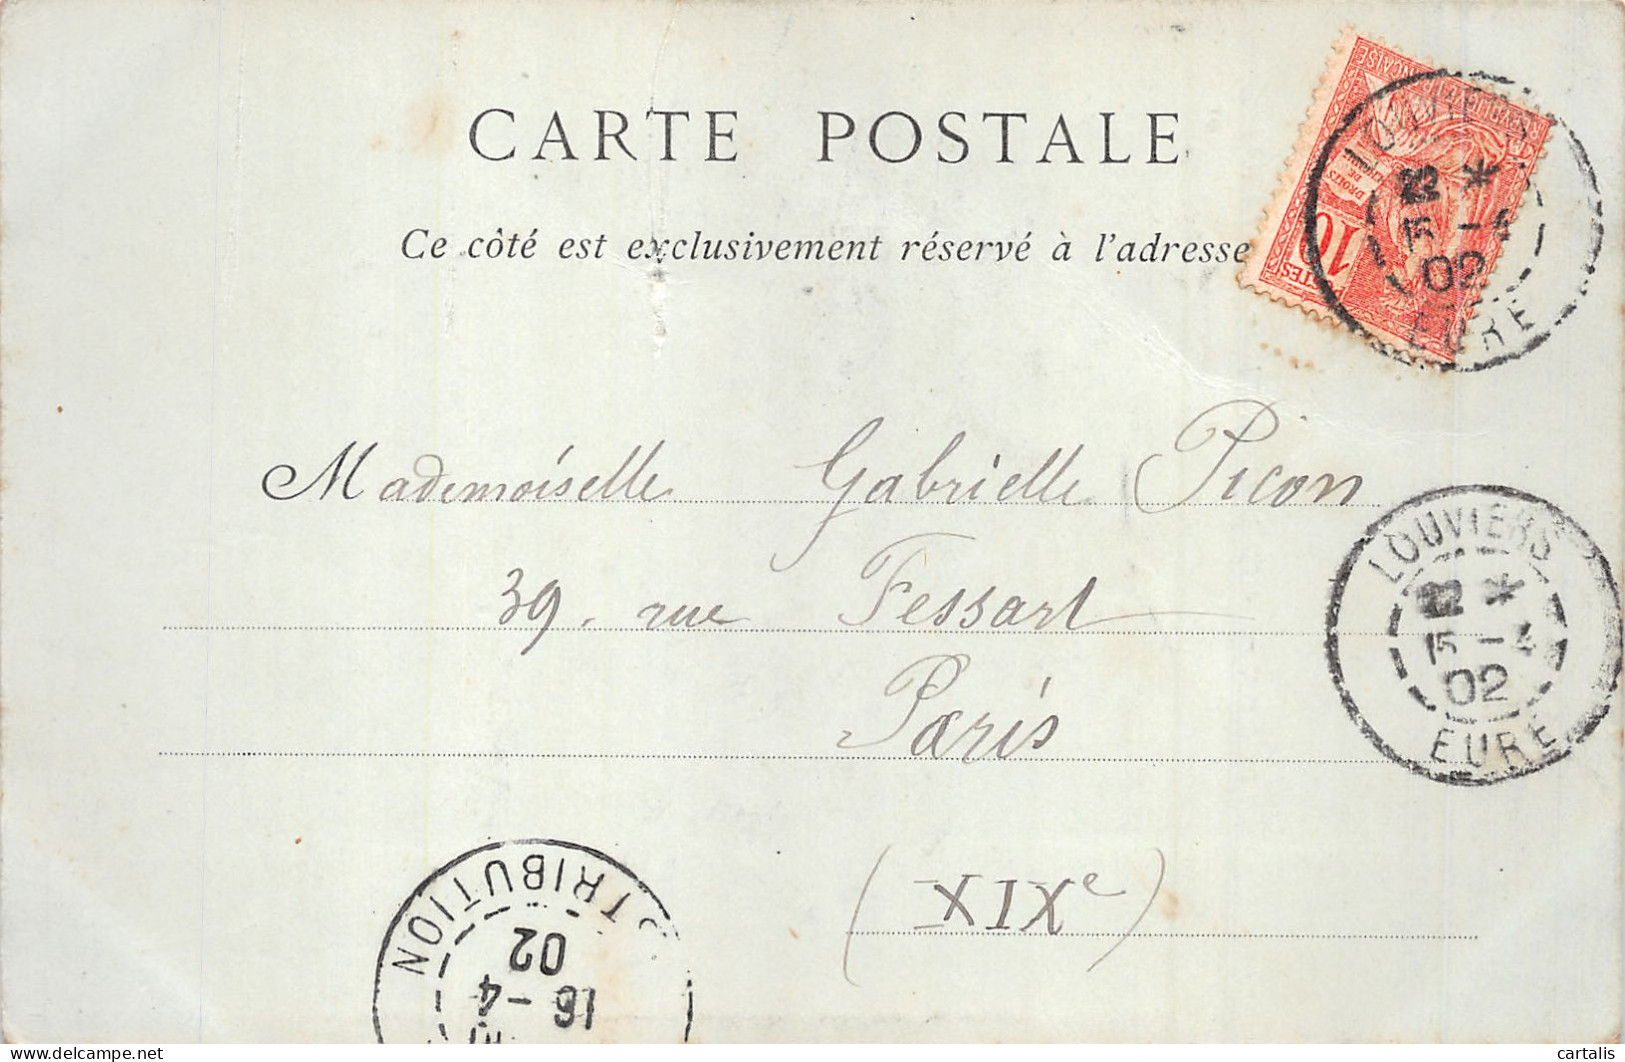 CARTE POSTALE
Ce côté est exclusivement réservé à l'adresse
POSTES
10
DROITS
DE
LOUVIERS
15 -4
02
EURE
Mademoiselle Gabrielle Picon
39, rue Fessart
Paris
(XIXe)
LOUVIERS
*
15 -4
02
EURE
TRIBUTION
16 -4
02
delcampe.net
cartalis